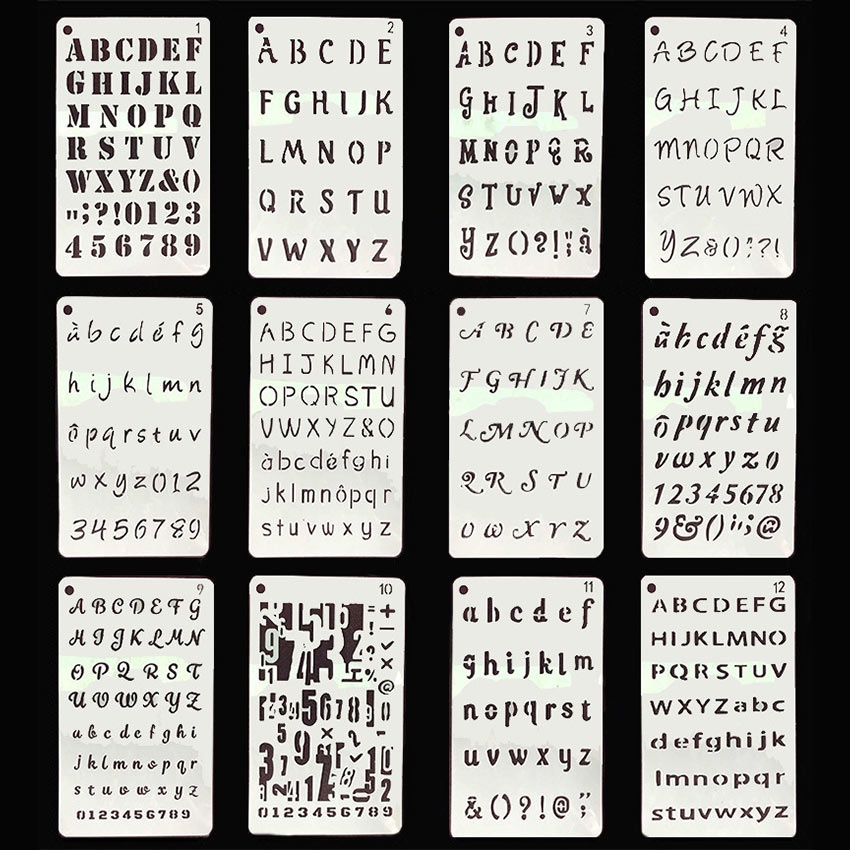 1
ABCDEF
GHIJKL
MNOPQ
RSTUV
WXYZ&()
";?!0123
456789
2
ABCDE
FGHIJK
LMNOP
QRSTU
VWXYZ
3
ABCDEF
GHIJKL
MNOPQR
STUVWX
YZ()?!";à
4
ABCDEF
GHIJKL
MNOPQR
STUVWX
YZ&():?!
5
àbcdéfg
hijklmn
ôpqrstuv
wxyz012
3456789
6
ABCDEFG
HIJKLMN
OPQRSTU
VWXYZ&()
àbcdéfghi
jklmnôpqr
stuvwxyz
7
ABCDE
FGHIJK
LMNOP
QRSTU
VWXYZ
8
àbcdéfg
hijklmn
ôpqrstu
vwxyz0
12345678
9&()";@
9
ABCDEFG
HIJKLMN
OPQRST
UVWXYZ
abcdefghi
jklmnopqr
stuvwxyz
0123456789
10
0123456789
11
abcdef
ghijklm
nopqrst
uvwxyz
&()?!@";
12
ABCDEFG
HIJKLMNO
PQRSTUV
WXYZabc
defghijk
lmnopqr
stuvwxyz